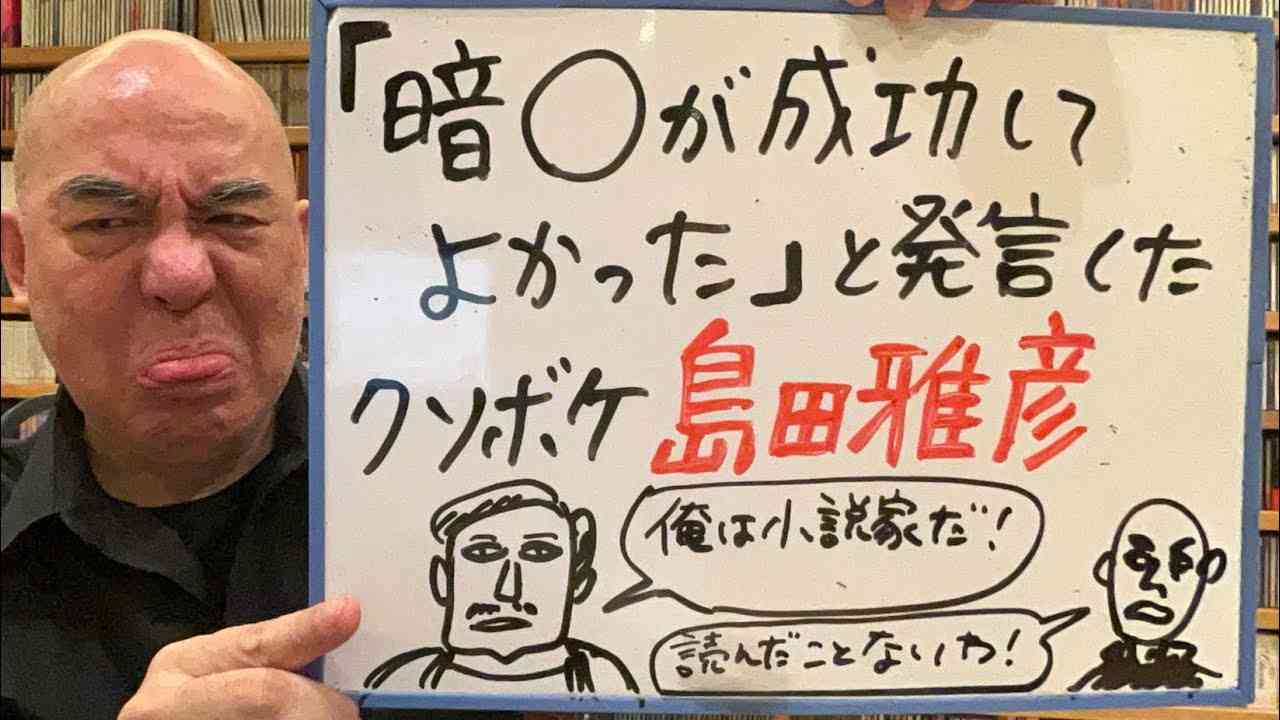 「暗〇が成功して
よかった」と発言した
クソボケ島田雅彦
俺は小説家だ!
読んだことないわ!